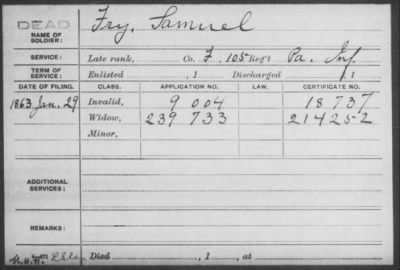 DEAD
NAME OF SOLDIER: Fry, Samuel
SERVICE: Late rank, Co. F. 105 Reg't Pa. Inf.
TERM OF SERVICE: Enlisted , 1 Discharged , 1
DATE OF FILING. CLASS. APPLICATION NO. LAW. CERTIFICATE NO.
1863 Jan. 29 Invalid, 9 004 18 737
Widow, 239 733 214252
Minor,
ADDITIONAL SERVICES:
REMARKS:
Died , 1 , at